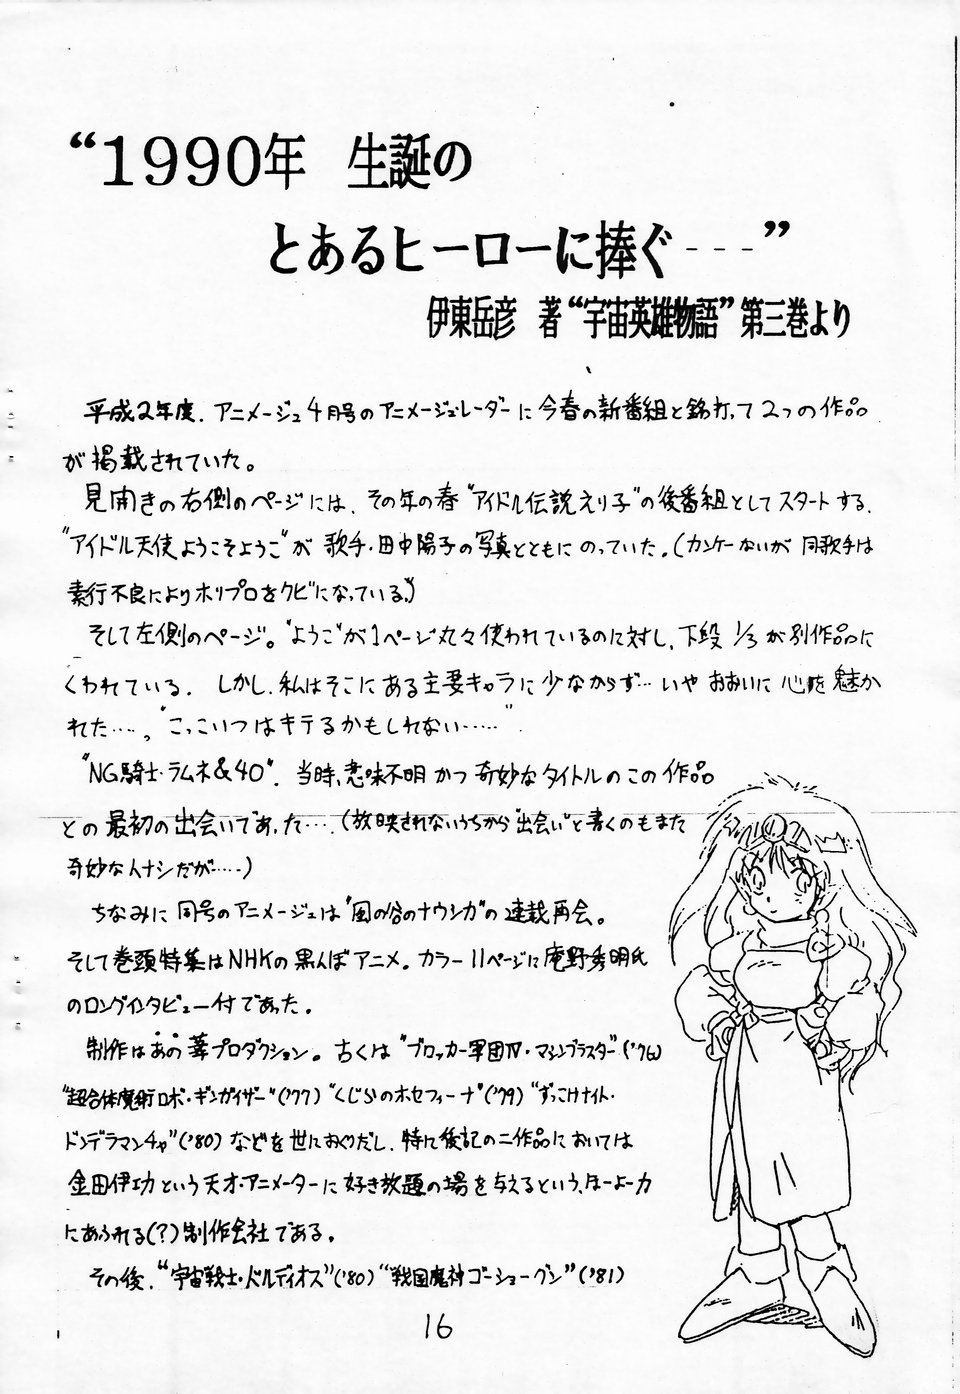 “1990年　生誕の
とあるヒーローに捧ぐ---”
伊東岳彦　著“宇宙英雄物語”第三巻より
平成2年度、アニメージュ4月号のアニメージュレーダーに今春の新番組と銘打って2つの作品
が掲載されていた。
見開きの右側のページには、その年の春“アイドル伝説えり子”の後番組としてスタートする、
“アイドル天使ようこそようこ”が歌手・田中陽子の写真とともにのっていた。(カンケーないが同歌手は
素行不良によりホリプロをクビになっている。)
そして左側のページ。“ようこ”が1ページ丸々使われているのに対し、下段1/3が別作品に
くわれている。しかし、私はそこにある主要キャラに少なからず…いやおおいに心を魅か
れた……。“こっこいつはキテるかもしれない……”
“NG騎士・ラムネ&40”。当時、意味不明かつ奇妙なタイトルのこの作品
との最初の出会いであった…。(放映されないうちから“出会い”と書くのもまた
奇妙なハナシだが……)
ちなみに同号のアニメージュは“風の谷のナウシカ”の連載再会。
そして巻頭特集はNHKの黒んぼアニメ。カラー11ページに庵野秀明氏
のロングインタビュー付であった。
制作はあの葦プロダクション。古くは“ブロッカー軍団Ⅳ・マシンブラスター”('76)
“超合体魔術ロボ・ギンガイザー”('77)“くじらのホセフィーナ”('79)“ずっこけナイト・
ドンデラマンチャ”('80)などを世におくりだし、特に後記の二作品においては
金田伊功という天才アニメーターに好き放題の場を与えるという、ほーよー力
にあふれる(?)制作会社である。
その後、“宇宙戦士・バルディオス”('80)“戦国魔神ゴーショーグン”('81)
16